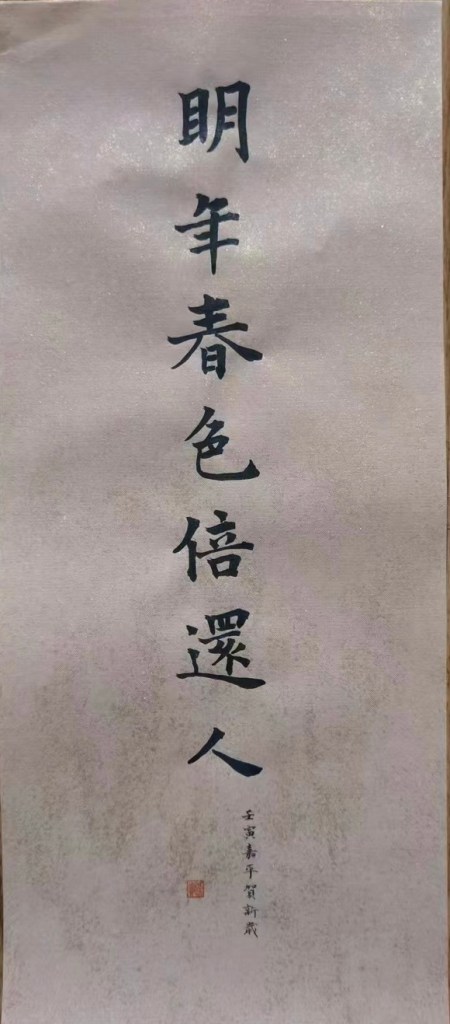 明年春色倍還人
壬寅嘉平賀新歲